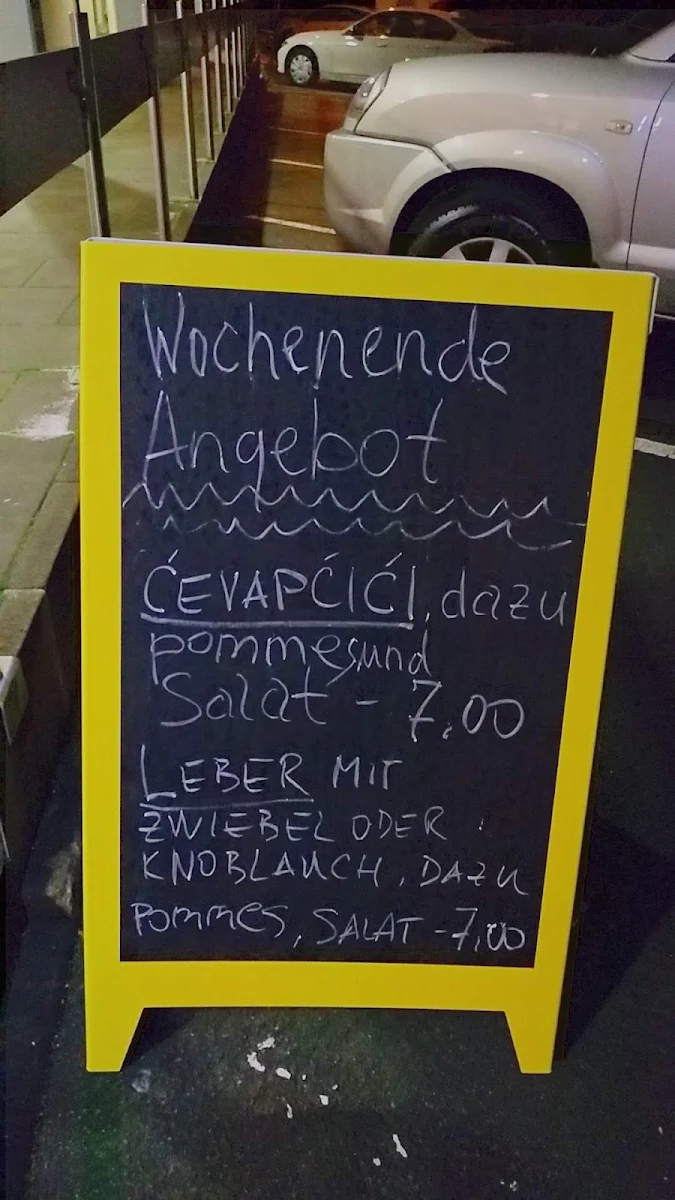 Wochenende
Angebot
ĆEVAPĆIĆI, dazu
pommes und
Salat - 7,00
LEBER MIT
ZWIEBEL ODER
KNOBLAUCH, DAZU
POMMES, SALAT - 7,00